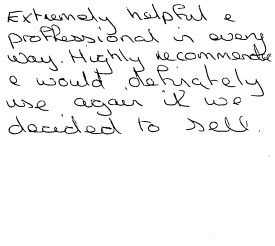 Extremely helpful e
proffessional in every
way. Highly recommende
e would definately
use again if we
decided to sell.